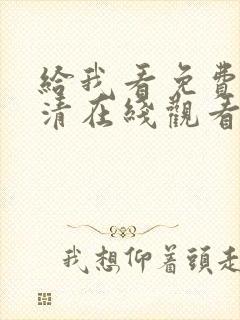 給我看免費
清在綫觀看
我想仰着頭走